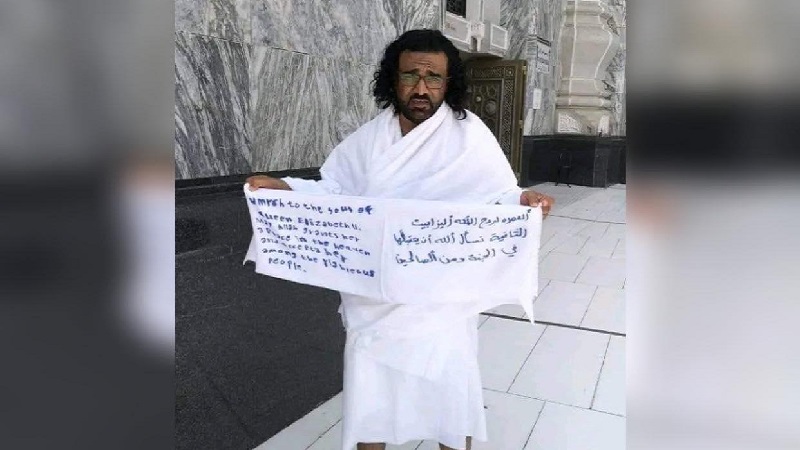 umrah to the soul of
Queen Elizabeth II.
May Allah grants her
a place in the heaven
and accepts her
among the righteous
people.
العمره لروح الملكه أليزابيث
الثانية نسأل الله أن يتقبلها
في الجنة ومن الصالحين